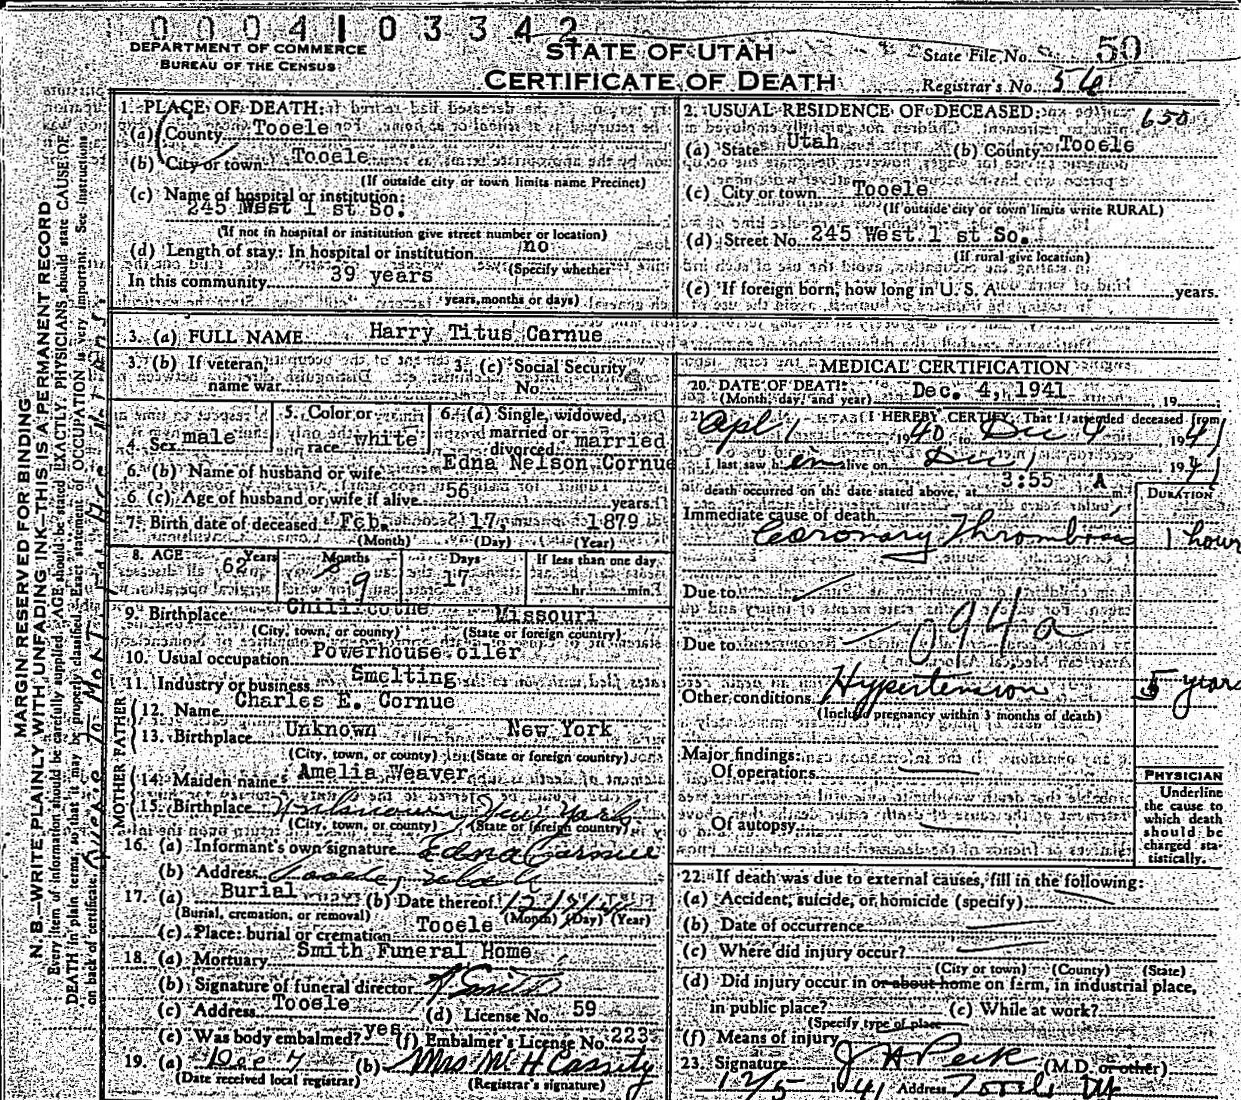 0 0 0 4 1 0 3 3 4 2
DEPARTMENT OF COMMERCE
BUREAU OF THE CENSUS
STATE OF UTAH
CERTIFICATE OF DEATH
State File No. 50
Registrar's No. 56
MARGIN RESERVED FOR BINDING
N. B.—WRITE PLAINLY WITH UNFADING INK—THIS IS A PERMANENT RECORD
Every item of information should be carefully supplied. AGE should be stated EXACTLY. PHYSICIANS should state CAUSE OF
DEATH in plain terms, so that it may be properly classified. Exact statement of OCCUPATION is very important. See instructions
on back of certificate.
1. PLACE OF DEATH:
(a) County Tooele
(b) City or town Tooele
(If outside city or town limits name Precinct)
(c) Name of hospital or institution:
245 West 1 st So.
(If not in hospital or institution give street number or location)
(d) Length of stay: In hospital or institution no
(Specify whether
In this community 39 years
years, months or days)
2. USUAL RESIDENCE OF DECEASED: 650
(a) State Utah (b) County Tooele
(c) City or town Tooele
(If outside city or town limits write RURAL)
(d) Street No. 245 West 1 st So.
(If rural give location)
(e) If foreign born, how long in U. S. A. years.
3. (a) FULL NAME Harry Titus Cornue
3. (b) If veteran, name war
3. (c) Social Security No.
4. Sex male
5. Color or race white
6. (a) Single, widowed, married or divorced married
6. (b) Name of husband or wife Edna Nelson Cornue
6 (c) Age of husband or wife if alive 56 years.
7. Birth date of deceased Feb. 17, 1879
(Month) (Day) (Year)
8. AGE Years 62 Months 9 Days 17 If less than one day
hr. min.
9. Birthplace Chillicothe Missouri
(City, town, or county) (State or foreign country)
10. Usual occupation Powerhouse oiler
11. Industry or business Smelting
FATHER
12. Name Charles E. Cornue
13. Birthplace Unknown New York
(City, town, or county) (State or foreign country)
MOTHER
14. Maiden name Amelia Weaver
15. Birthplace Unknown New York
(City, town, or county) (State or foreign country)
16. (a) Informant's own signature Edna Cornue
(b) Address Tooele, Utah
17. (a) Burial (b) Date thereof
(Burial, cremation, or removal) (Month) (Day) (Year)
(c) Place: burial or cremation Tooele
18. (a) Mortuary Smith Funeral Home
(b) Signature of funeral director Smith
(c) Address Tooele (d) License No. 59
(e) Was body embalmed? yes (f) Embalmer's License No. 223
19. (a) Dec 7 (b) Mrs M H Cassity
(Date received local registrar) (Registrar's signature)
MEDICAL CERTIFICATION
20. DATE OF DEATH: Dec. 4, 1941
(Month, day, and year) 19
21. I HEREBY CERTIFY, That I attended deceased from
Apl 1 1940, to Dec 4 1941
I last saw h im alive on Dec 1 1941
death occurred on the date stated above, at 3:55 A m.
DURATION
Immediate cause of death
Coronary Thrombosis 1 hour
Due to
Due to 094a
Other conditions Hypertension 5 years
(Include pregnancy within 3 months of death)
Major findings:
Of operations
Of autopsy
PHYSICIAN
Underline
the cause to
which death
should be
charged sta-
tistically.
22. If death was due to external causes, fill in the following:
(a) Accident, suicide, or homicide (specify)
(b) Date of occurrence
(c) Where did injury occur?
(City or town) (County) (State)
(d) Did injury occur in or about home on farm, in industrial place,
in public place? (e) While at work?
(Specify type of place
(f) Means of injury
23. Signature J H Peck (M.D. or other)
12/5 41 Address Tooele Ut